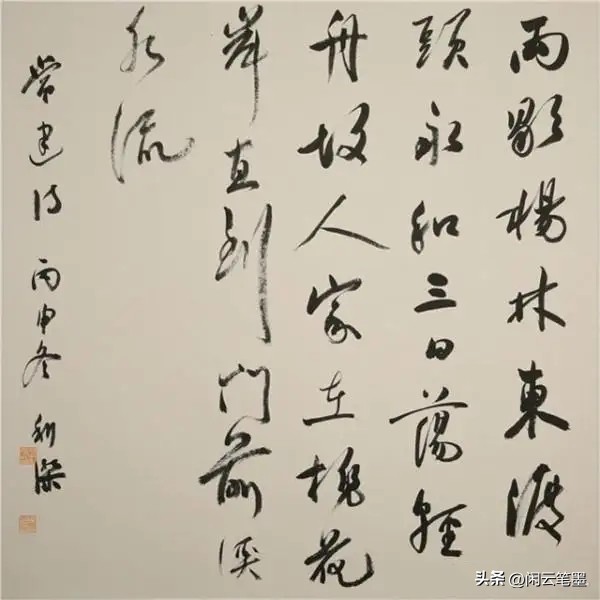 雨歇楊林東渡
頭永和三日蕩輕
舟故人家在桃花
岸直到門前溪
水流
常建詩 丙申冬 利
头条 @闲云笔墨